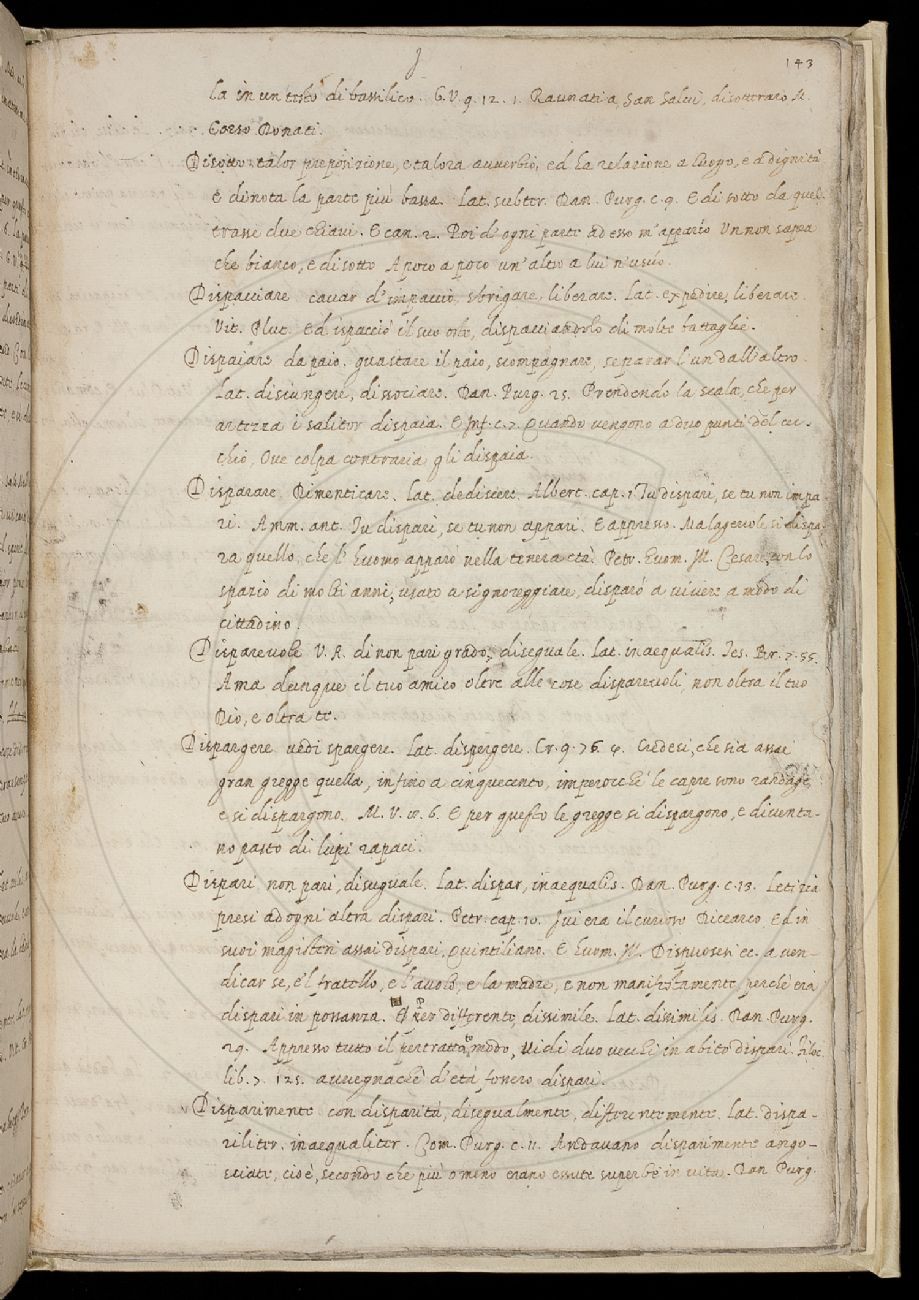 143
la in un testo di bassilico. G. V. 9. 12. 1. Raunati a San Salvi, disotterraro M.
Corso Donati.
Disotto talor preposizione, e talora avverbio, ed ha relazione a luogo, e a dignità
e dinota la parte più bassa. Lat. subter. Dan. Purg. c. 9. E di sotto da quel
trasse due chiavi. E can. 2. Poi d'ogni parte ad esso m'appario Un non sapea
che bianco, e di sotto A poco a poco un'altro a lui n'uscio.
Dispacciare cavar d'impaccio, sbrigare, liberare. Lat. expedire, liberare.
Vit. Plut. Ed ispacciò il suo oste, dispacciandolo di molte battaglie.
Dispaiare da paio. guastare il paio, scompagnare, separar l'un dall'altro.
Lat. disiungere, dissociare. Dan. Purg. 25. Prendendo la scala, che per
artezza i salitor dispaia. E Inf. c. 7. Quando vengono a duo punti del cer-
chio, Ove colpa contraria gli dispaia.
Disparare, Dimenticare. Lat. dediscere. Albert. cap. 1. Tu dispari, se tu non impa-
ri. Amm. ant. Tu dispari, se tu non appari. E appresso. Malagevole si dispa-
ra quello, che l'huomo apparò nella tenera età. Petr. huom. Ill. Cesare, con lo
spazio di molti anni, usato a signoreggiare, disparò a vivere a modo di
cittadino.
Disparevole V. A. di non pari grado, diseguale. Lat. inaequalis. Tes. Br. 7. 55.
Ama dunque il tuo amico oltre alle cose disparevoli, non oltra il tuo
Dio, e oltra te.
Dispargere vedi spargere. Lat. dispergere. Cr. 9. 76. 4. Credesi, che sia assai
gran gregge quella, infino a cinquecento, imperocche le capre sono randage,
e si dispargono. M. V. 10. 6. E per questo le gregge si dispargono, e diventa-
no pasto di lupi rapaci.
Dispari non pari, disuguale. Lat. dispar, inaequalis. Dan. Purg. c. 13. Letizia
presi ad ogni altra dispari. Petr. cap. 10. Ivi era il curioso Dicearco Ed in
suoi magisteri assai dispari, Quintiliano. E huom. Ill. Dispuosesi ec. a ven-
dicar se, e'l fratello, e l'avolo, e la madre, e non manifestamente, perchè era
dispari in possanza. Per differente, dissimile. Lat. dissimilis. Dan. Purg.
29. Appresso tutto il pertrattato modo, Vidi duo vecchi in abito dispari. Filoc.
lib. 7. 125. avvegnachè d'età fossero dispari.
Disparimente con disparità, disegualmente, differentemente. Lat. dispa-
riliter, inaequaliter. Com. Purg. c. 11. Andavano disparimente ango-
sciate, cioè, secondo che più o meno erano essute superbe in vita. Dan Purg.